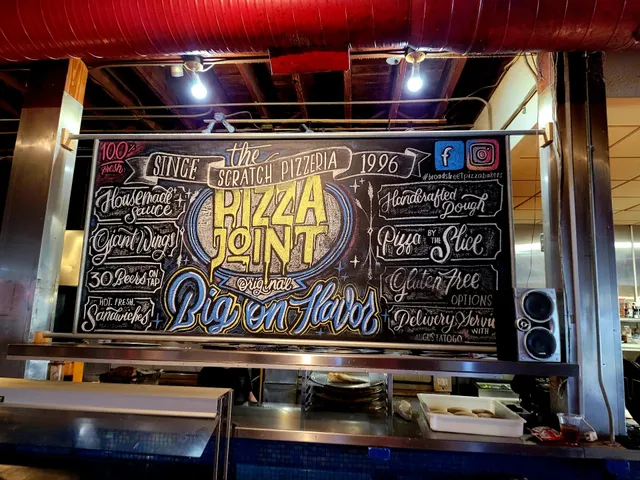 100%
fresh
the
SINCE SCRATCH PIZZERIA 1996
f
#broadstreetpizzabakers
PIZZA
JOINT
Original
Big on Flavor
Housemade
Sauce
Giant Wings
30 Beers ON TAP
HOT, FRESH,
Sandwiches
Handcrafted
Dough
Pizza BY THE Slice
Gluten Free
OPTIONS
Delivery Servi
WITH
AUGUSTATOGO